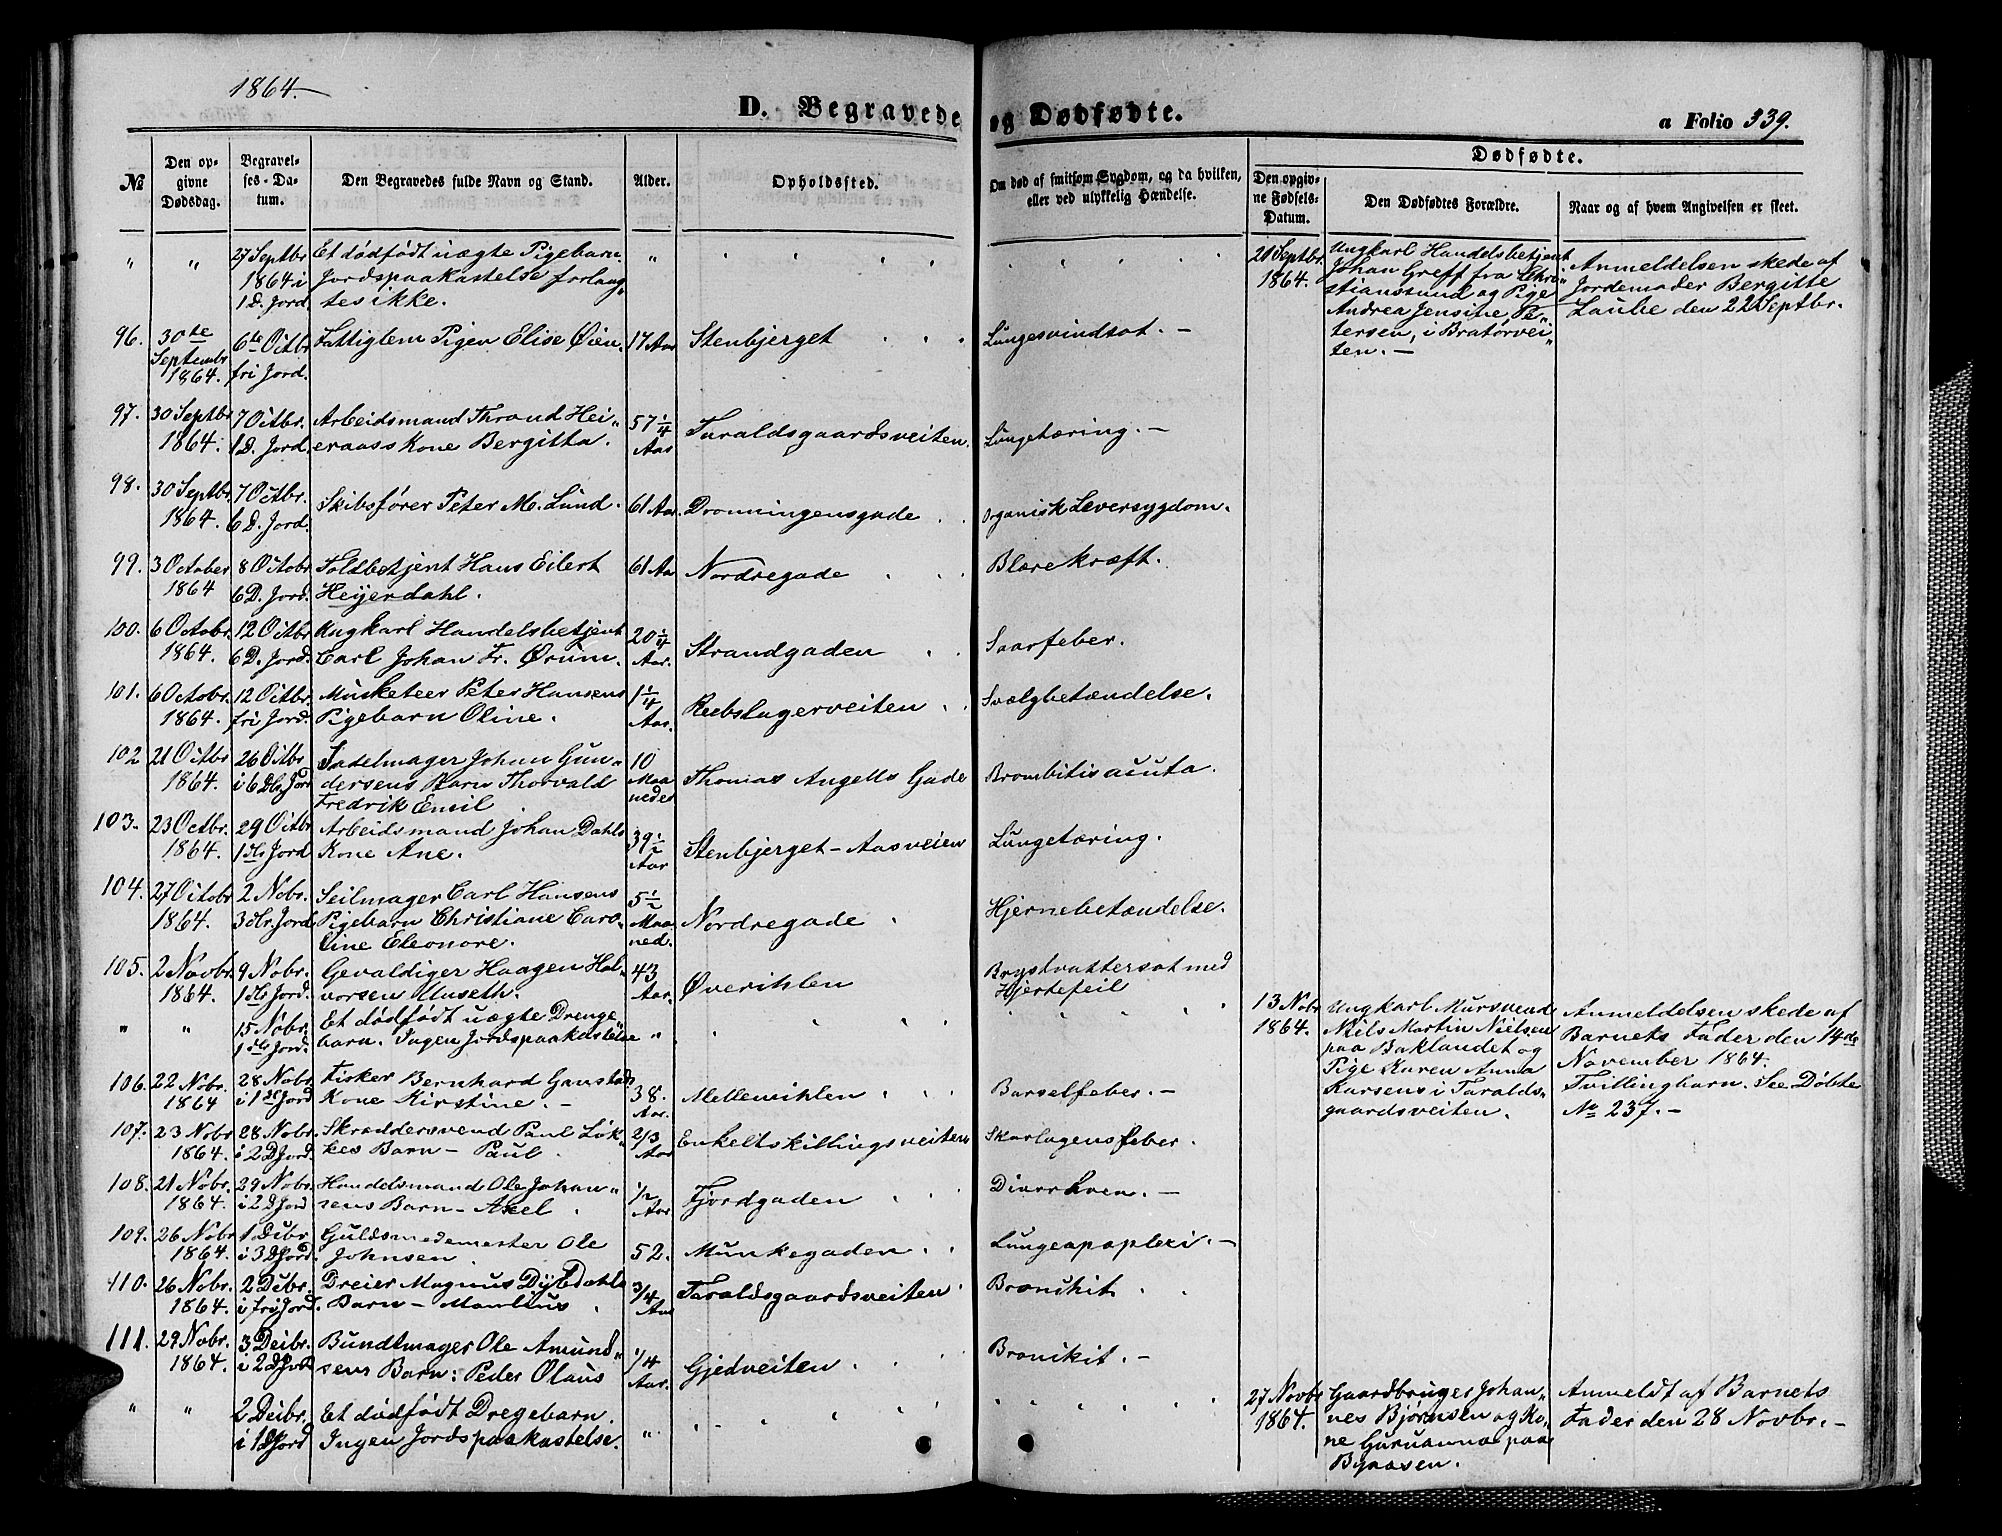 1864.
D. Begravede og Dødfødte.
a Folio 339.
№
Den opgivne Dødsdag.
Begravelses-Datum.
Den Begravedes fulde Navn og Stand.
Alder.
Opholdssted.
Om død af smitsom Sygdom, og da hvilken, eller ved ulykkelig Hændelse.
Dødfødte.
Den opgivne Fødsels-Datum.
Den Dødfødtes Forældre.
Naar og af hvem Angivelsen er skeet.
" " 27 Septbr 1864 i 1 D. Jord
Et dødfødt uægte Pigebarn.
Jordspaakastelse forlang"
tes ikke.
21 Septbr 1864.
Ungkarl Handelsbetjent
Johan Greff fra Chri"
stianssund og Pige
Andrea Jensine Pe"
tersen, i Bratørvei"
ten. —
Anmeldelsen skede af
Jordemoder Bergitte
Laube den 22 Septbr.
96. 30te Septembr 1864. 6te Octbr fri Jord.
Fattiglem Pigen Elise Øien
17 Aar Stenbjerget
Lungesvindsot. —
97. 30 Septbr 1864. 7 Octbr. 1 D. Jord.
Arbeidsmand Thrond Hei"
eraas skone Bergitta.
57 1/4 Aar Taraldsgaardsveiten.
Lungetæring. —
98. 30 Septbr. 1864. 7 Octbr. 6 D. Jord.
Skibsfører Peter M. Lund.
61 Aar. Dronningensgade
Organisk Leversygdom.
99. 3 October 1864 8 Octobr 6 D. Jord.
Toldbetjent Hans Eilert
Heijerdahl.
61 Aar Nordregade
Blærekræft.
100. 6 Octobr. 1864. 12 Octbr 6 D. Jord.
Ungkarl Handelsbetjent
Carl Johan Fr. Ørum.
20 1/4 Aar. Strandgaden
Saarfeber.
101. 6 Octobr. 1864. 12 Octbr. fri Jord.
Musketeer Peter Hansens
Pigebarn Oline.
1 1/4 Aar. Reebslagerveiten
Svælgbetændelse.
102 21 Octbr 1864. 26 Octbr i 6 Dls Jord
Sadelmager Johan Gun"
dersens Barn Thorvald
Fredrik Emil
10 Maanedes Thomas Angells Gade
Bronchitis acuta.
103. 23 Octbr. 1864. 29 Octbr 1 dls Jord
Arbeidsmand Johan Dahls
Kone Ane.
39 1/2 Aar Stenbjerget - Aasveien
Lungetæring.
104. 27 Octobr 1864. 2 Nobr. 3 dlr. Jord
Seilmager Carl Hansens
Pigebarn Christiane Caro"
line Eleonore.
5 1/2 Maaned. Nordregade
Hjernebetændelse.
105. 2 Novbr. 1864. 9 Nobr. 1 dls Jord.
Gevaldiger Haagen Hal"
vorsen Museth.
43 Aar. Øverihlen
Brystvattersot med
Hjertefeil
" " 15 Nobr. 1 dls Jord.
Et dødfødt uægte Drenge"
barn. Ingen Jordspaakastelse
"
13 Nobr 1864.
Ungkarl Mursvend
Niels Martin Nielsen
paa Baklandet og
Pige Karen Anna
Larsens i Taralds"
gaardsveiten.
Anmeldelsen skede af
Barnets Fader den 14de
November 1864.
Tvillingbarn. See Døbte
No 237. —
106. 22 Nobr. 1864 28 Nobr i 1ste Jord
Fisker Bernhard Ganstads
Kone Kirstine. —
38. Aar. Mellemihlen
Barselfeber. —
107. 23 Nobr 1864. 28 Nobr. i 2 D Jord.
Skræddersvend Paul Løk"
kes Barn — Paul.
2/3 Aar Enkeltskillingsveiten
Skarlagensfeber.
108. 21 Nobr. 1864. 29 Nobr. i 2 D Jord
Handelsmand Ole Johan"
sens Barn — Axel
1/2 Aar Fjordgaden
Diarrhoen. —
109. 26 Nobr 1864. 1 Decbr i 3 D Jord.
Guldsmedemester Ole
Johnsen
52. Munkegaden
Lungeapoplexi. —
110. 26 Nobr. 1864. 2 Decbr. i fri Jord.
Dreier Magnus Dybdahls
Barn — Manlius
3/4 Aar Taraldsgaardsveiten
Bronikit.
111. 29 Nobr. 1864. 3 Decbr. i 2 D Jord
Bundtmager Ole Amund"
sens Barn: Peder Olaus
1/4 Aar. Gjedveiten
Bronikit. —
" " 2 Decbr. i 1 D Jord
Et dødfødt Dregebarn.
Ingen Jordspaakastelse.
"
27 Novbr 1864.
Gaardbruger Johan"
nes Bjørnsen og Ko"
ne Guruanna paa
Byaasen.
Anmeldt af Barnets
Fader den 28 Novbr. —